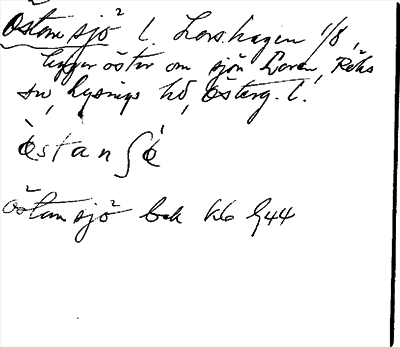 Östansjö l. Lorshagen 1/8,
ligger öster om sjön Loren, Röks
sn, Lysings hd, Österg. l.
östanʃö
Östansjö bek Kb G44